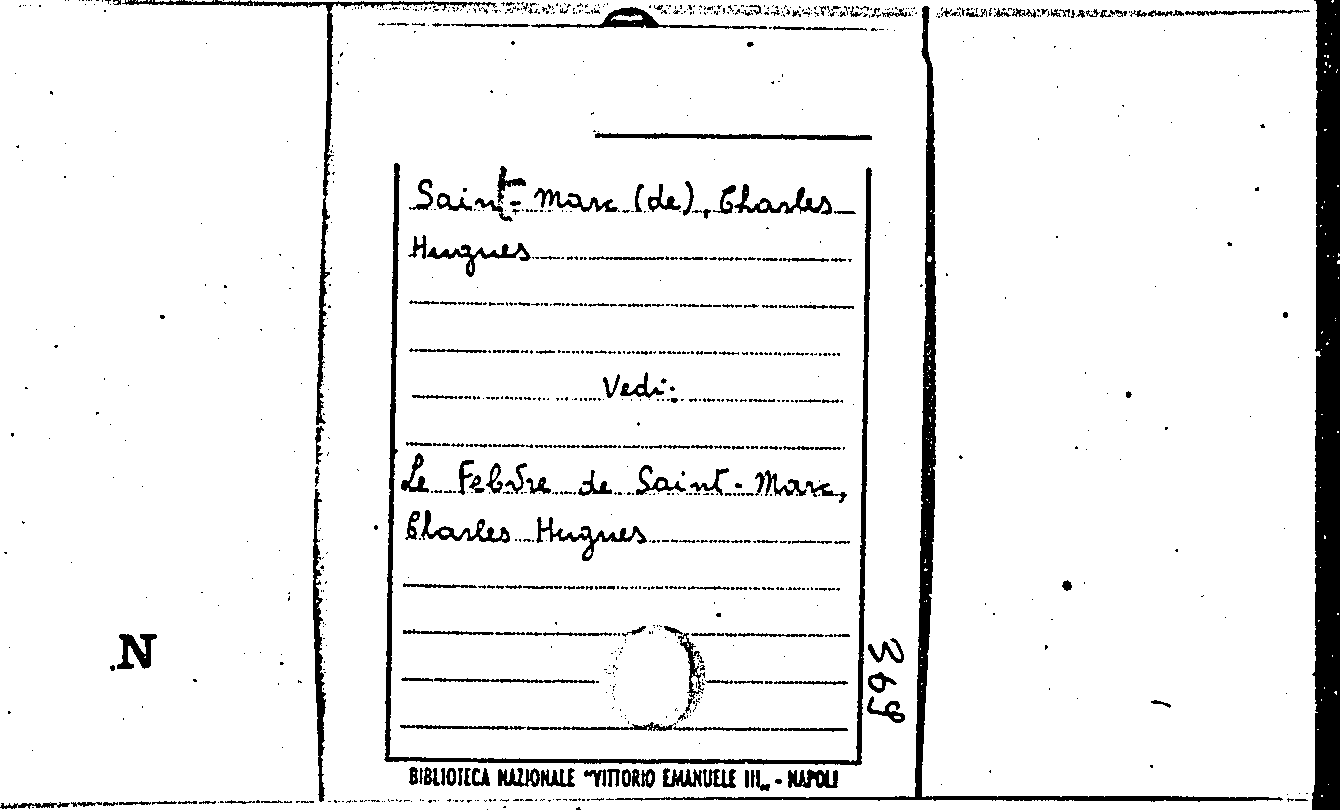 Saint-Marc (de), Charles
Hugues
Vedi:
Le Febvre de Saint-Marc,
Charles Hugues
N
369
BIBLIOTECA NAZIONALE "VITTORIO EMANUELE III„ - NAPOLI